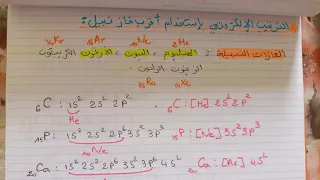 الترتيب الإلكتروني بإستخدام أقرب غاز نبيل:
₃₆Kr ₁₈Ar ₁₀Ne ₂He
الغازات النبيلة: الهيليوم، النيون، الأرغون، الكريبتون
الزينون الرادون
₈₆Rn ₅₄Xe
₆C : 1s² 2s² 2p² ₆C : [He] 2s² 2p²
He
₁₅P : 1s² 2s² 2p⁶ 3s² 3p³ ₁₅P : [Ne] 3s² 3p³
₁₀Ne
₂₀Ca : 1s² 2s² 2p⁶ 3s² 3p⁶ 4s² ₂₀Ca : [Ar] 4s²